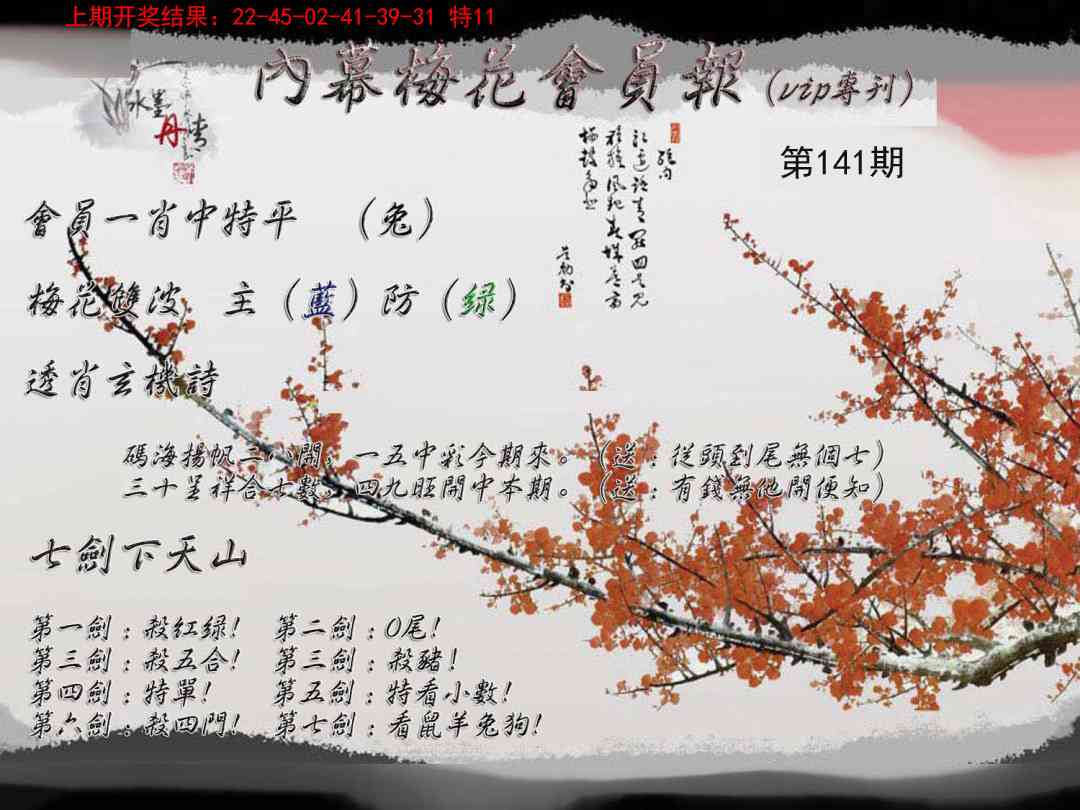 上期开奖结果：22-45-02-41-39-31 特11
內幕梅花會員報（vip專刊）
水墨
丹情
第141期
會員一肖中特平 （兔）
梅花雙波 主（藍）防（绿）
透肖玄機詩
碼海揚帆二八開，一五中彩今期來。（送：從頭到尾無個七）
三十呈祥合七數，四九旺開中本期。（送：有錢無他開便知）
七劍下天山
第一劍：殺紅绿! 第二劍：0尾!
第三劍：殺五合! 第三劍：殺豬!
第四劍：特單! 第五劍：特看小數!
第六劍：殺四門! 第七劍：看鼠羊兔狗!